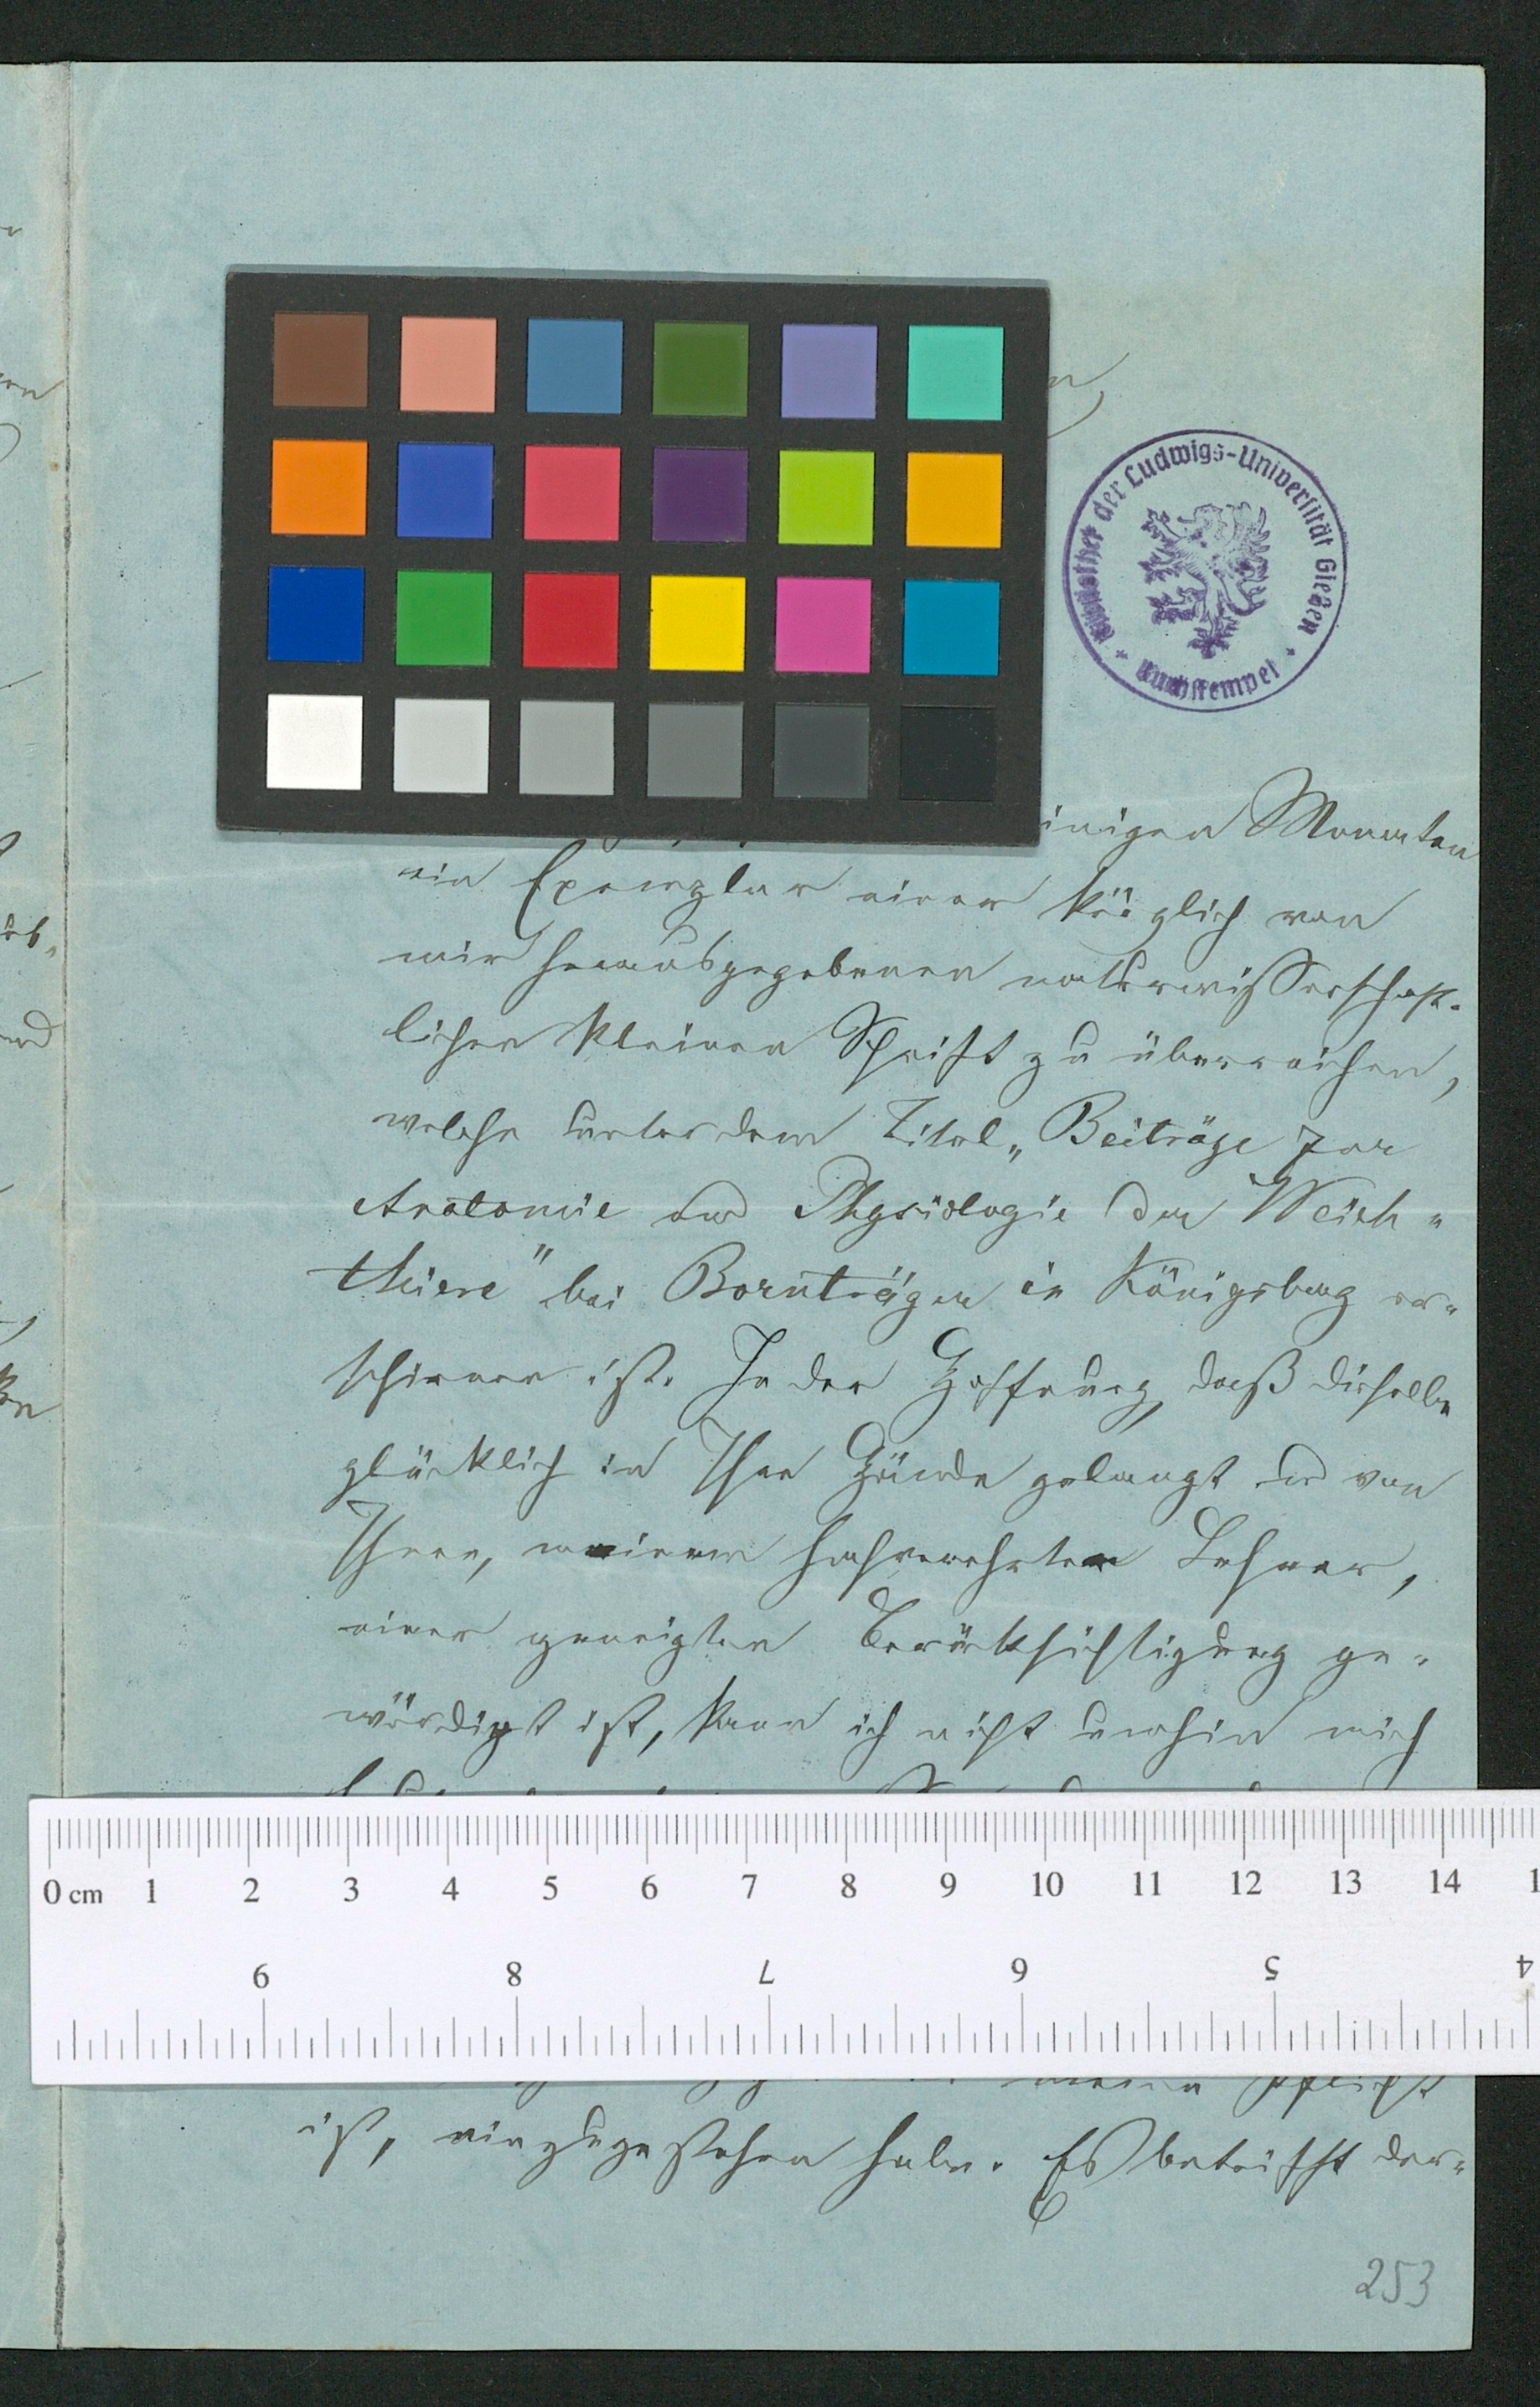 Bibliothek der Ludwigs-Universität Gießen
Buchstempel
inigen Monaten
ein Exemplar einer kürzlich von
mir herausgegebenen naturwissenschaft-
lichen kleinen Schrift zu überreichen,
welche unter dem Titel „Beiträge zur
Anatomie und Physiologie der Weich-
thiere" bei Bornträger in Königsberg er-
schienen ist. In der Hoffnung, daß dieselbe
glücklich in Ihre Hände gelangt und von
Ihnen, meinem hochverehrten Lehrer,
einer geneigten Berücksichtigung ge-
würdigt ist, kann ich nicht umhin mich
0 cm 1 2 3 4 5 6 7 8 9 10 11 12 13 14 1
9 8 7 6 5 4
meine Pflicht
ist, einzugestehen habe. Es betrifft der-
253